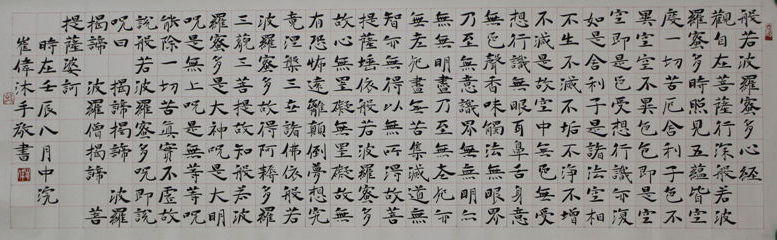 般若波羅蜜多心經
觀自在菩薩行深般若波
羅蜜多時照見五蘊皆空
度一切苦厄舍利子色不
異空空不異色色即是空
空即是色受想行識亦復
如是舍利子是諸法空相
不生不滅不垢不淨不增
不減是故空中無色無受
想行識無眼耳鼻舌身意
無色聲香味觸法無眼界
乃至無意識界無無明亦
無無明盡乃至無老死亦
無老死盡無苦集滅道無
智亦無得以無所得故菩
提薩埵依般若波羅蜜多
故心無罣礙無罣礙故無
有恐怖遠離顛倒夢想究
竟涅槃三世諸佛依般若
波羅蜜多故得阿耨多羅
三藐三菩提故知般若波
羅蜜多是大神咒是大明
咒是無上咒是無等等咒
能除一切苦真實不虛故
說般若波羅蜜多咒即說
咒曰 揭諦揭諦 波羅
揭諦 波羅僧揭諦 菩
提薩婆訶
時在壬辰八月中浣
崔偉沐手敬書